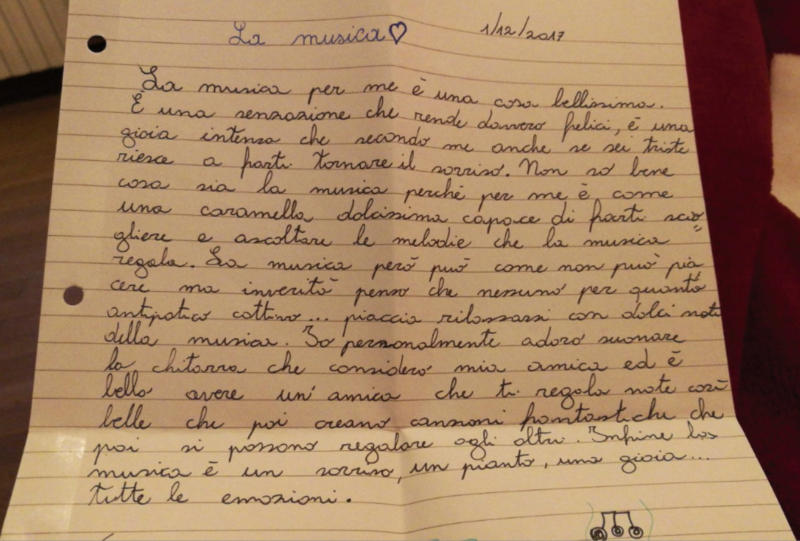 La musica♡ 1/12/2017
La musica per me è una cosa bellissima.
È una sensazione che rende davvero felici, è una
gioia intensa che secondo me anche se sei triste
riesce a farti tornare il sorriso. Non so bene
cosa sia la musica perché per me è come
una caramella dolcissima capace di farti scio=
gliere e ascoltare le melodie che la musica
regala. La musica però può come non può pia
cere ma in verità penso che nessuno per quanto
antipatico cattivo... piaccia rilassarsi con dolci note
della musica. Io personalmente adoro suonare
la chitarra che considero mia amica ed è
bello avere un'amica che ti regala note così
belle che poi creano canzoni fantastiche che
poi si possono regalare agli altri. Infine la
musica è un sorriso, un pianto, una gioia...
tutte le emozioni.